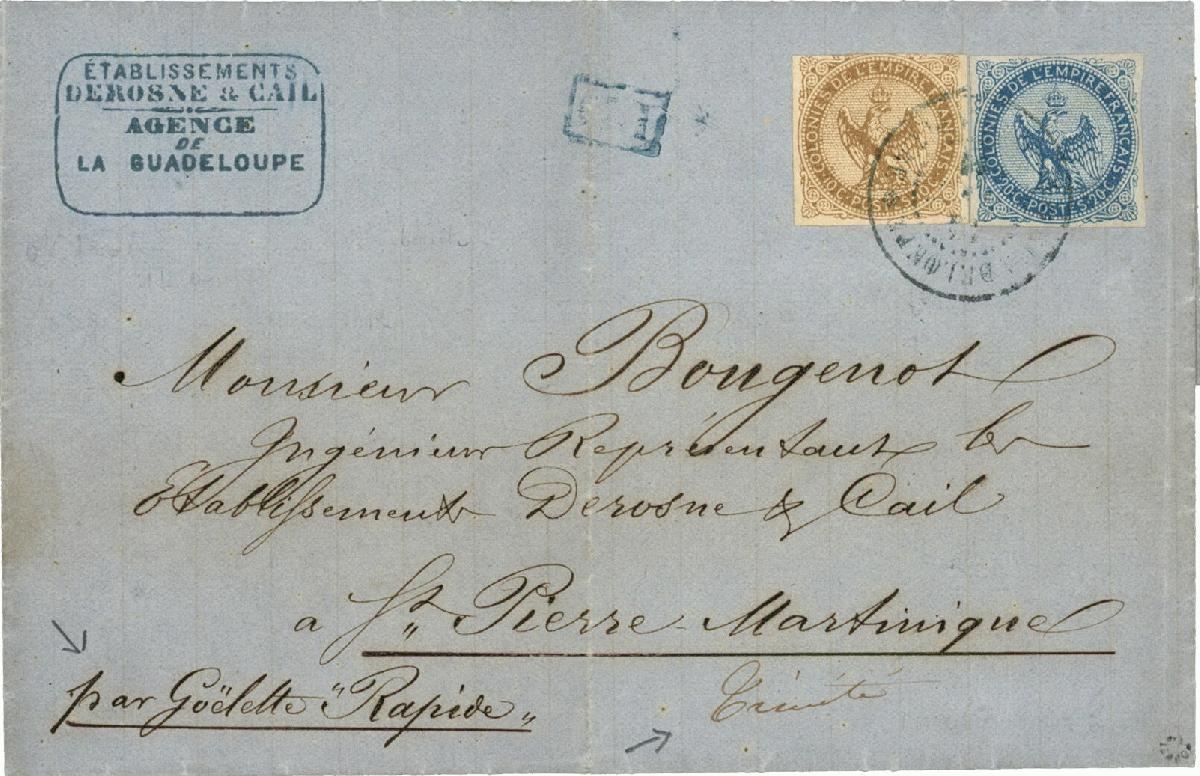 ÉTABLISSEMENTS
DEROSNE & CAIL
AGENCE
DE
LA GUADELOUPE
COLONIES DE L'EMPIRE FRANÇAIS
10C. POSTES 10C.
COLONIES DE L'EMPIRE FRANÇAIS
20C. POSTES 20C.
Monsieur Bougenot
Ingénieur Représentant les
Etablissements Derosne & Cail
a St. Pierre - Martinique
Trinité
par Goëlette "Rapide"